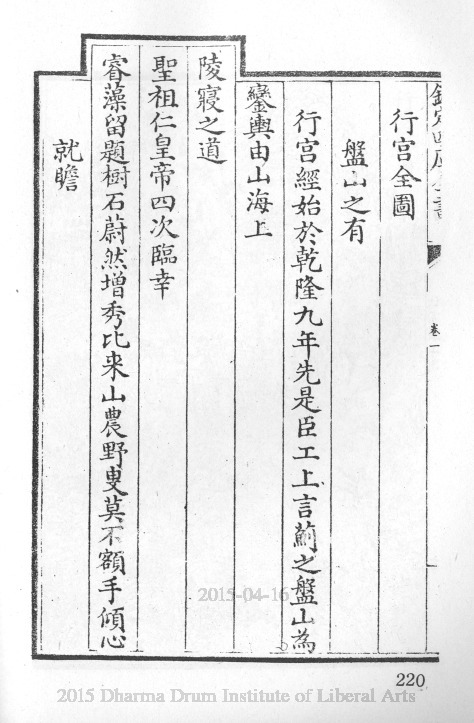 欽定四庫全書
卷一
行宫全圖
盤山之有
行宫經始於乾隆九年先是臣工上言薊之盤山為
鑾輿由山海上
陵寢之道
聖祖仁皇帝四次臨幸
睿藻留題樹石蔚然增秀比来山農野叟莫不額手傾心
就瞻
2015-04-16
220
2015 Dharma Drum Institute of Liberal Arts